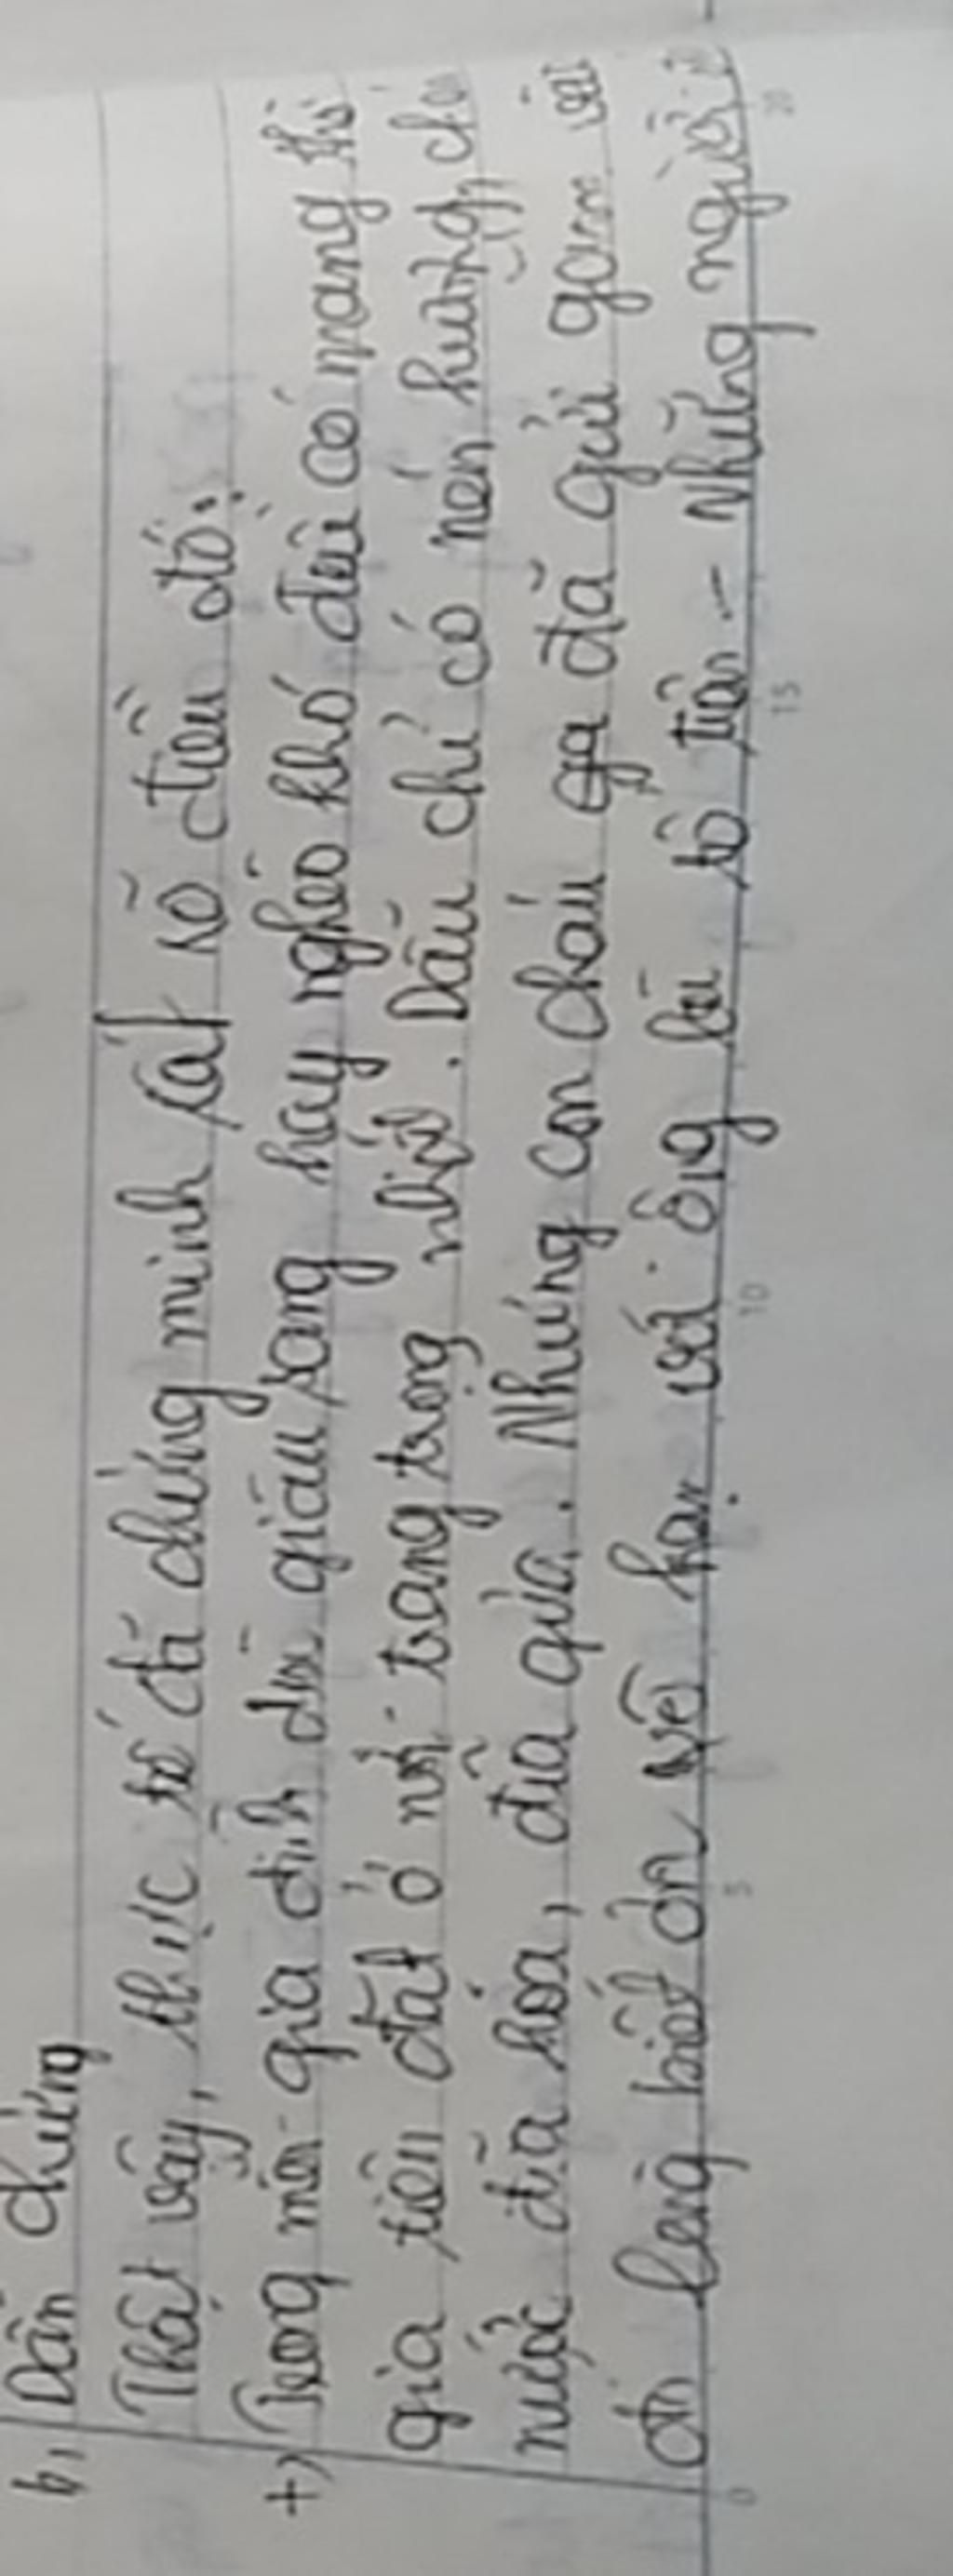 b, Dẫn chứng
Thật vậy, thực tế đã chứng minh rất rõ điều đó:
+) Trong mỗi gia đình dù giàu sang hay nghèo khó đều có mang thờ
gia tiên đặt ở nơi trang trọng nhất. Dẫu chỉ có nén hương, chén
nước đĩa hoa, đĩa quả. Nhưng con cháu đã gửi gắm vào
đó lòng biết ơn vô hạn với ông bà tổ tiên - Những người